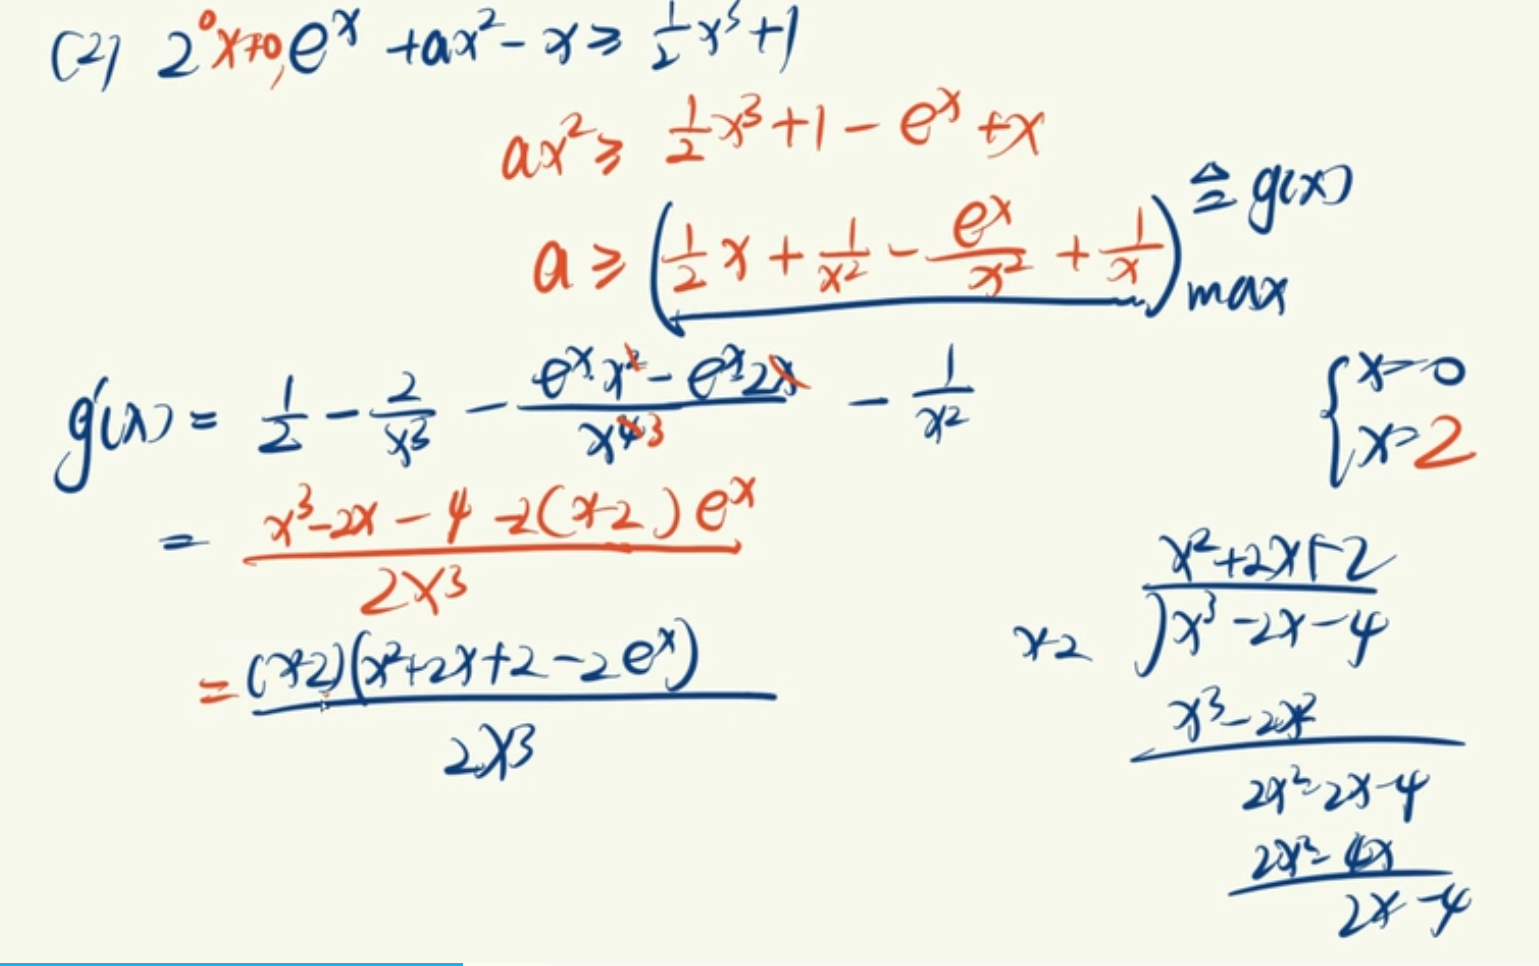 (2) 2° x≠0, eˣ + ax² - x ≥ 1/2 x³ + 1
ax² ≥ 1/2 x³ + 1 - eˣ + x
a ≥ (1/2 x + 1/x² - eˣ/x² + 1/x)max ≜ g(x)
g'(x) = 1/2 - 2/x³ - (eˣ·x² - eˣ·2x)/x⁴ 3 - 1/x²
{x=0
x=2
= (x³-2x-4-2(x-2)eˣ)/2x³
= (x-2)(x²+2x+2-2eˣ)/2x³
x²+2x+2
x-2 )x³-2x-4
x³-2x²
2x²-2x-4
2x²-4x
2x-4